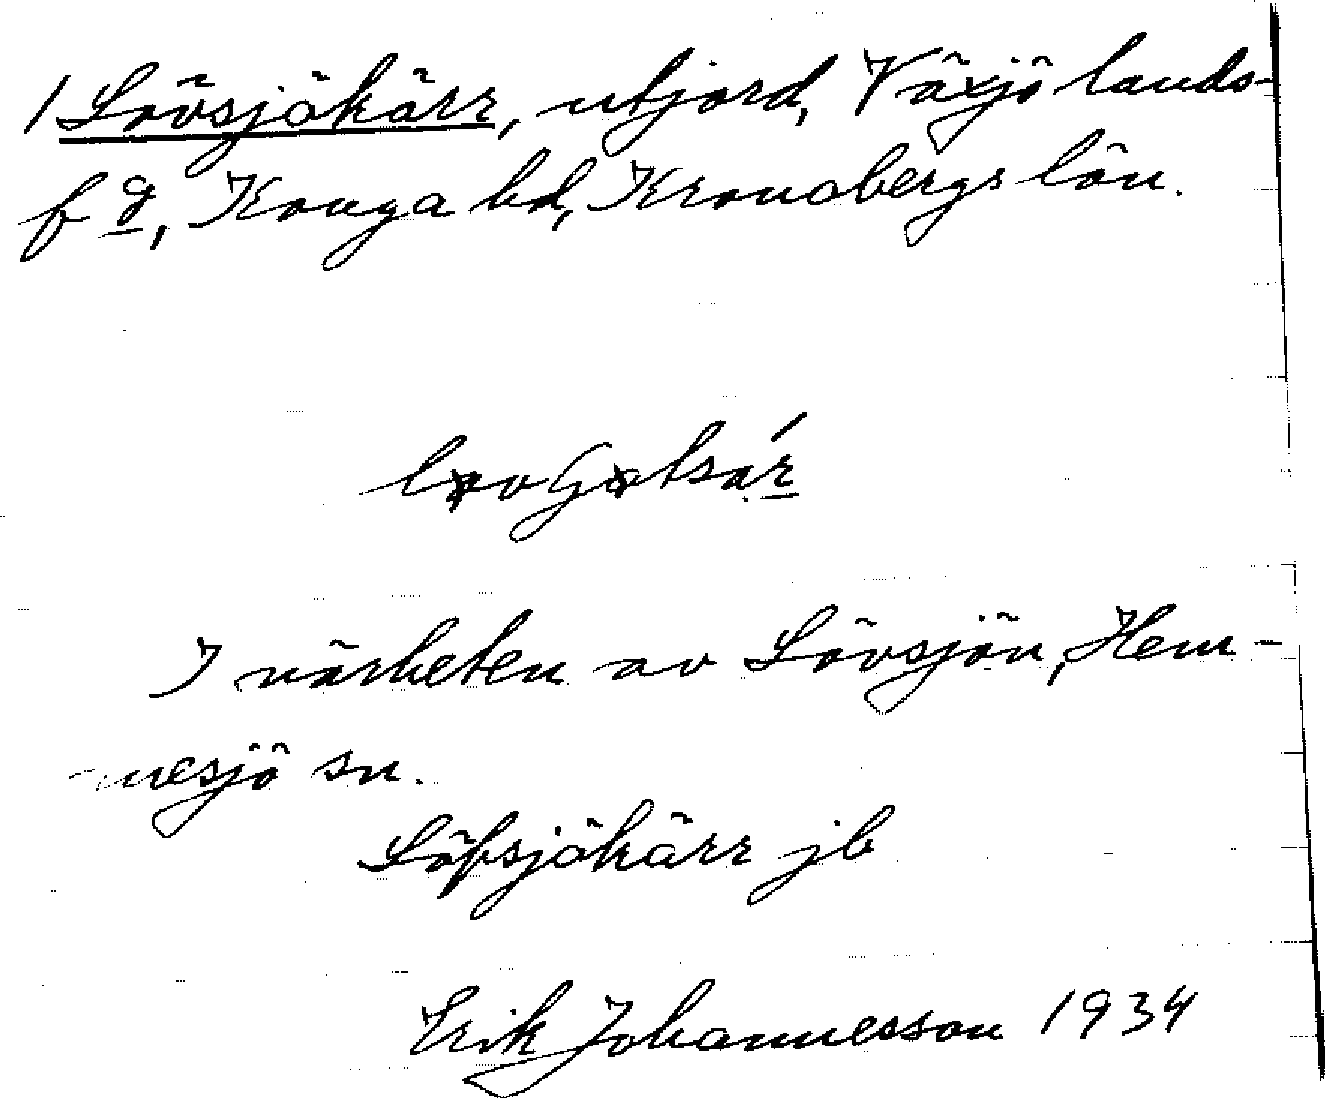 1 Lövsjökärr, utjord, Växjö lands-
f g, Konga hd, Kronobergs län.
I närheten av Lövsjön, Hem-
-mesjö sn.
Löfsjökärr jb
Erik Johannesson 1934